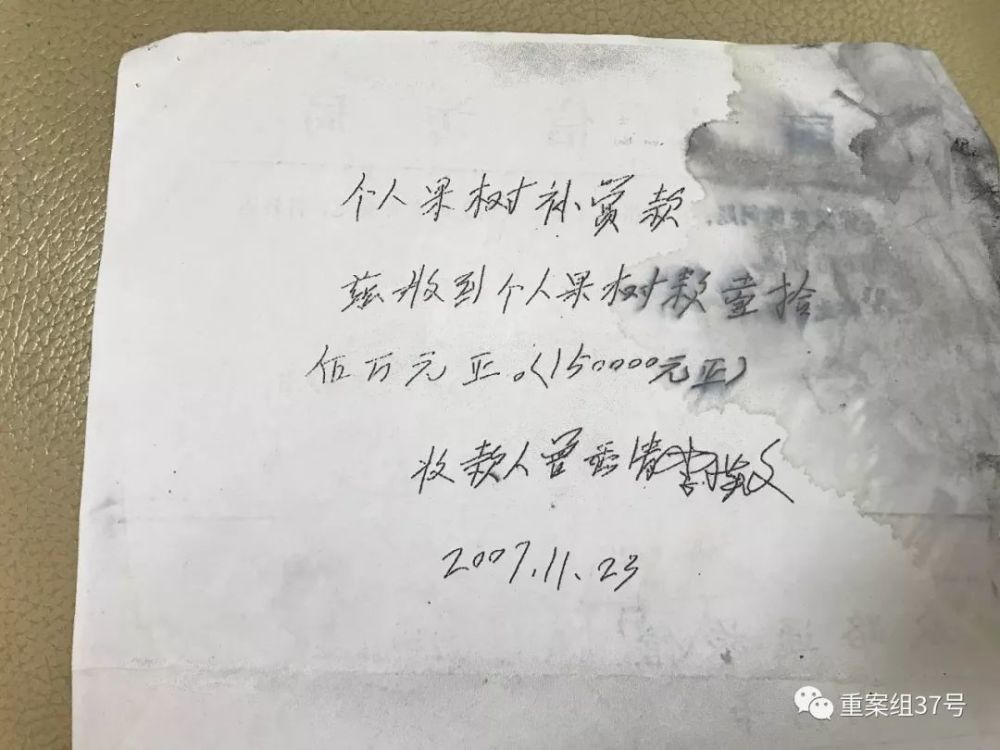 个人果树补赏款
兹收到个人果树款壹拾
伍万元正。(150000元正)
收款人曾
2007.11.23
重案组37号